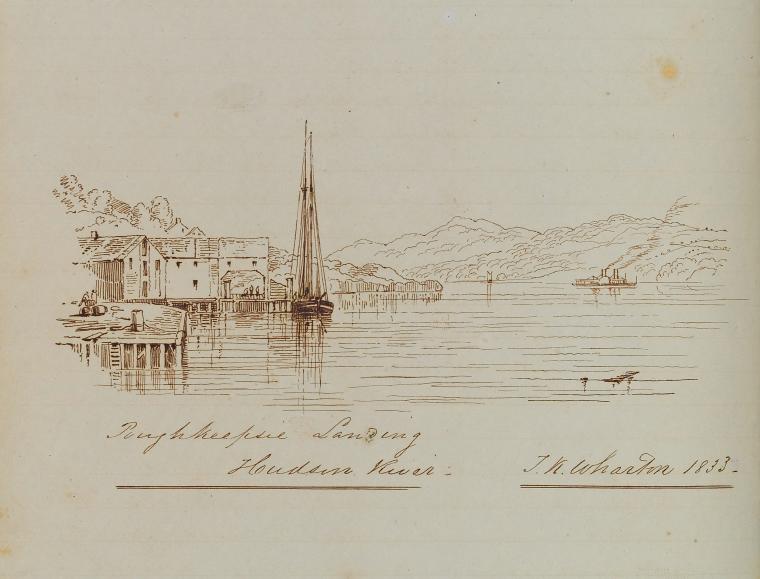 Poughkeepsie Landing
Hudson River.
T. K. Wharton 1833.